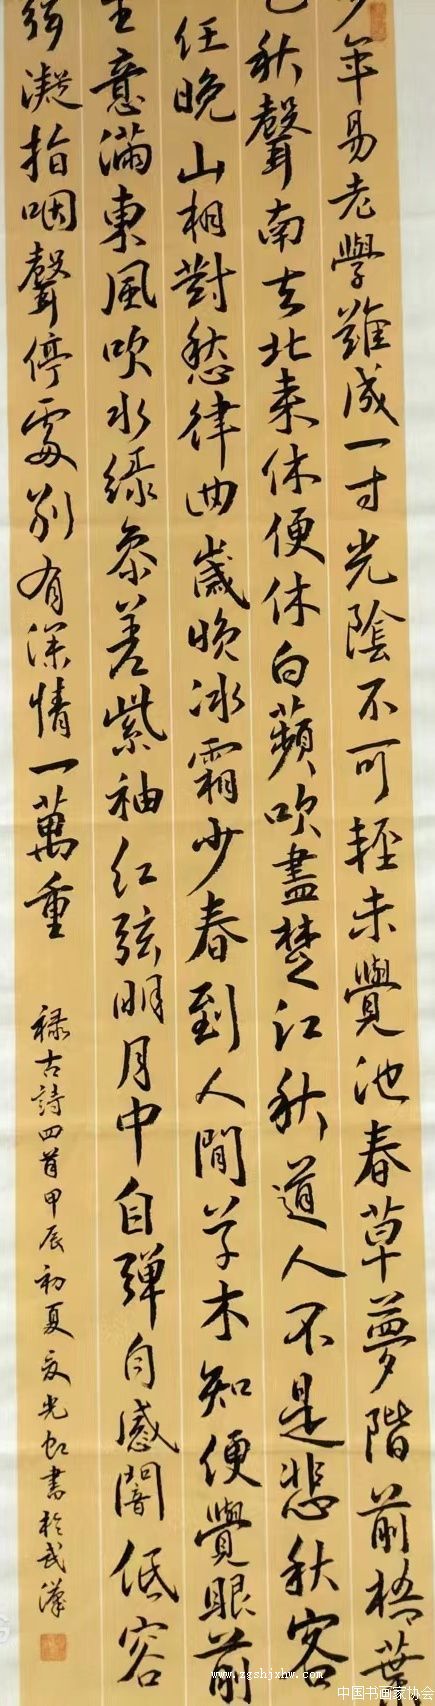 少年易老學難成一寸光陰不可輕未覺池春草夢階前梧葉
已秋聲南去北來休便休白蘋吹盡楚江秋道人不是悲秋客
任晚山相對愁律回歲晚冰霜少春到人間草木知便覺眼前
生意滿東風吹水綠參差紫袖紅弦明月中自彈自感闇低容
弦凝指咽聲停處別有深情一萬重
祿古詩四首甲辰初夏光虹書於武漢
www.zgshjxhw.com
中国书画家协会